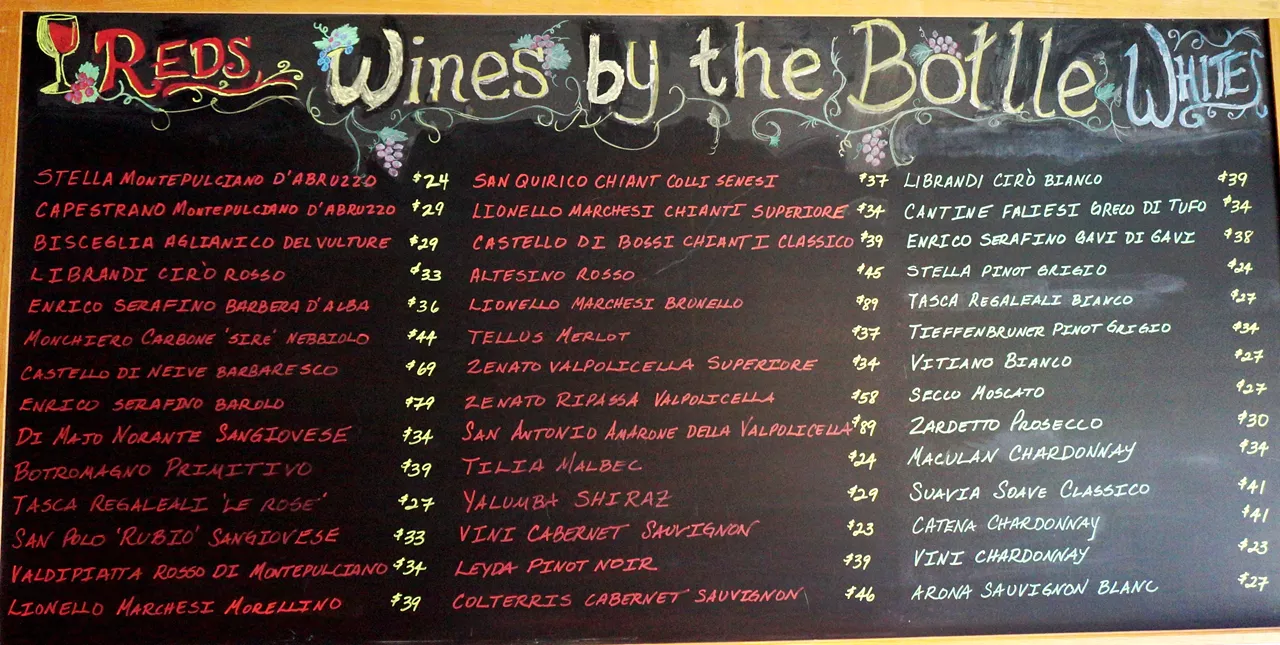 REDS Wines by the Botlle WHITES
STELLA MONTEPULCIANO D'ABRUZZO $24
CAPESTRANO MONTEPULCIANO D'ABRUZZO $29
BISCEGLIA AGLIANICO DEL VULTURE $29
LIBRANDI CIRÒ ROSSO $33
ENRICO SERAFINO BARBERA D'ALBA $36
MONCHIERO CARBONE 'SIRE' NEBBIOLO $44
CASTELLO DI NEIVE BARBARESCO $69
ENRICO SERAFINO BAROLO $79
DI MAJO NORANTE SANGIOVESE $34
BOTROMAGNO PRIMITIVO $39
TASCA REGALEALI 'LE ROSE' $27
SAN POLO 'RUBIO' SANGIOVESE $33
VALDIPIATTA ROSSO DI MONTEPULCIANO $34
LIONELLO MARCHESI MORELLINO $39
SAN QUIRICO CHIANT COLLI SENESI $37
LIONELLO MARCHESI CHIANTI SUPERIORE $34
CASTELLO DI BOSSI CHIANTI CLASSICO $39
ALTESINO ROSSO $45
LIONELLO MARCHESI BRUNELLO $89
TELLUS MERLOT $37
ZENATO VALPOLICELLA SUPERIORE $34
ZENATO RIPASSA VALPOLICELLA $58
SAN ANTONIO AMARONE DELLA VALPOLICELLA $89
TILIA MALBEC $24
YALUMBA SHIRAZ $29
VINI CABERNET SAUVIGNON $23
LEYDA PINOT NOIR $39
COLTERRIS CABERNET SAUVIGNON $46
LIBRANDI CIRÒ BIANCO $39
CANTINE FALIESI GRECO DI TUFO $34
ENRICO SERAFINO GAVI DI GAVI $38
STELLA PINOT GRIGIO $24
TASCA REGALEALI BIANCO $27
TIEFFENBRUNER PINOT GRIGIO $34
VITIANO BIANCO $27
SECCO MOSCATO $27
ZARDETTO PROSECCO $30
MACULAN CHARDONNAY $34
SUAVIA SOAVE CLASSICO $41
CATENA CHARDONNAY $41
VINI CHARDONNAY $23
ARONA SAUVIGNON BLANC $27